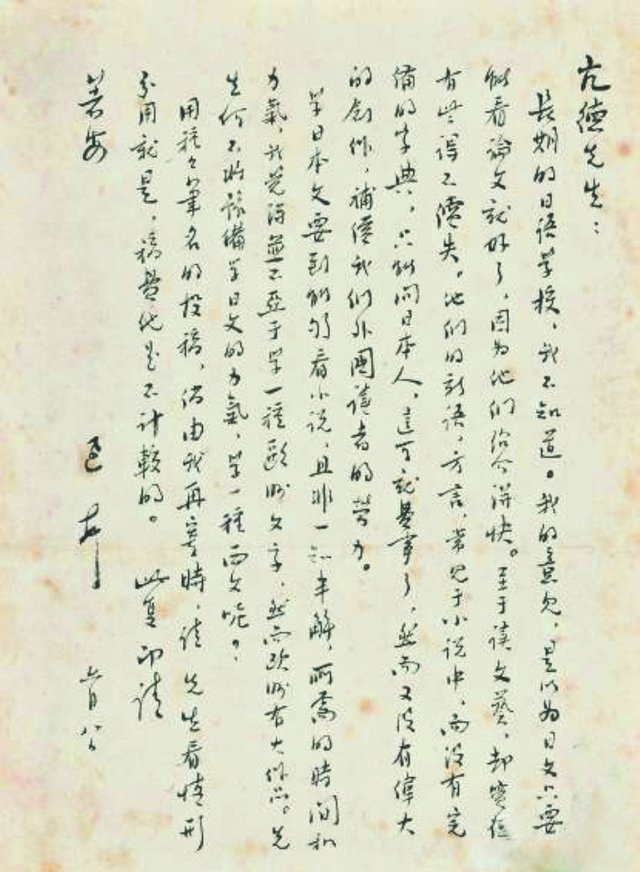 亢德先生：
长期的日语学校，我不知道。我的意见，是以为日文只要
能看论文就好了，因为他们绍介得快。至于读文艺，却实在
有些得不偿失。他们的新语，方言，常见于小说中，而没有完
备的字典，只能问日本人，这可就费事了，然而又没有伟大
的创作，补偿我们外国读者的劳力。
学日本文要到能够看小说，且非一知半解，所需的时间和
力氣，我觉得並不亚于学一種歐洲文字，然而欧洲有大作品。先
生何不将豫備学日文的力氣，学一種西文呢？
用種々筆名的投稿，倘由我再寄時，請先生看情形
分用就是，稿費他是不计較的。 此复 即請
著安 迅 上 六月八日